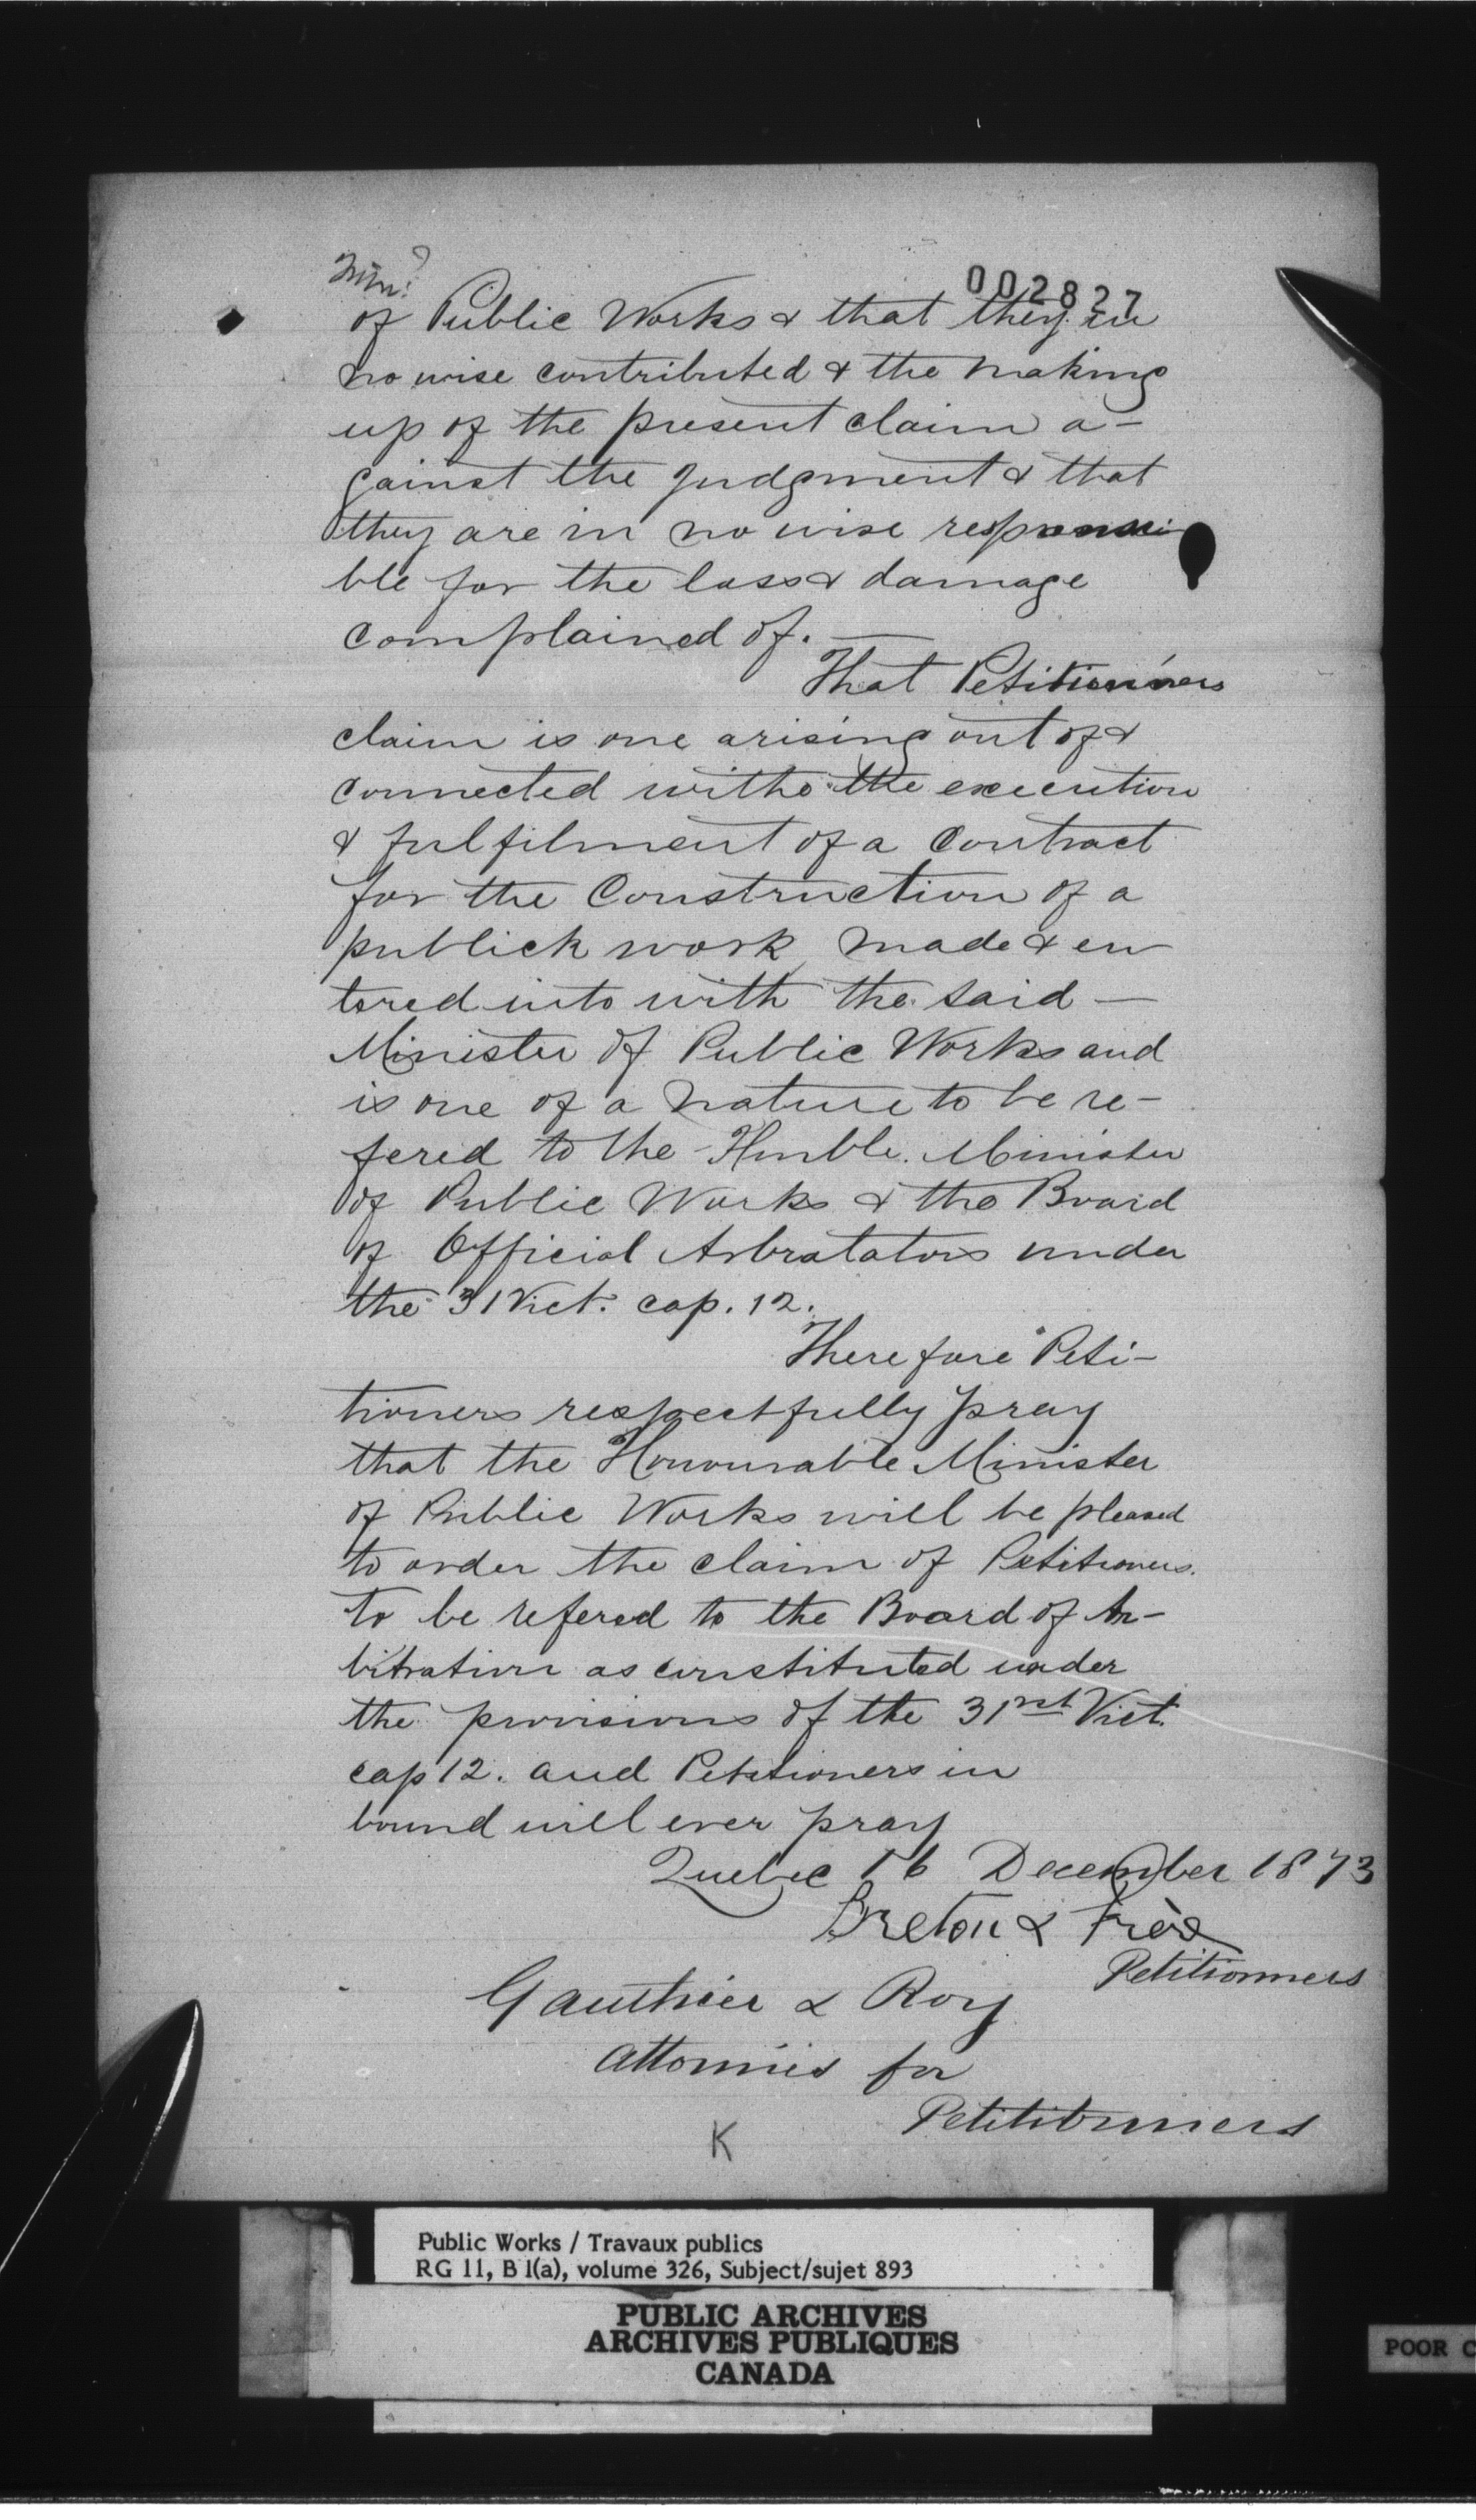 Min?
002827
of Public Works & that they in
no wise contributed & the making
up of the present claim a-
gainst the judgment & that
they are in no wise responsi
ble for the loss & damage
complained of. —
That Petitionners
claim is one arising out of &
connected with the execution
& fulfilment of a contract
for the Construction of a
publick work made & en
tered into with the said —
Minister of Public Works and
is one of a nature to be re-
fered to the Honble. Minister
of Public Works & the Board
of Official Arbratators under
the 31 Vict. cap. 12.
Therefore Peti-
tioners respectfully pray
that the Honourable Minister
of Public Works will be pleased
to order the claim of Petitioners.
to be refered to the Board of Ar-
bitration as constituted under
the provisions of the 31rst Vict.
cap 12. and Petitioners in
bound will ever pray
Quebec 16 December 1873
Breton & Frère
Petitionners
Gauthier & Roy
Attornies for
Petitionners
K
Public Works / Travaux publics
RG 11, B 1(a), volume 326, Subject/sujet 893
PUBLIC ARCHIVES
ARCHIVES PUBLIQUES
CANADA
POOR C